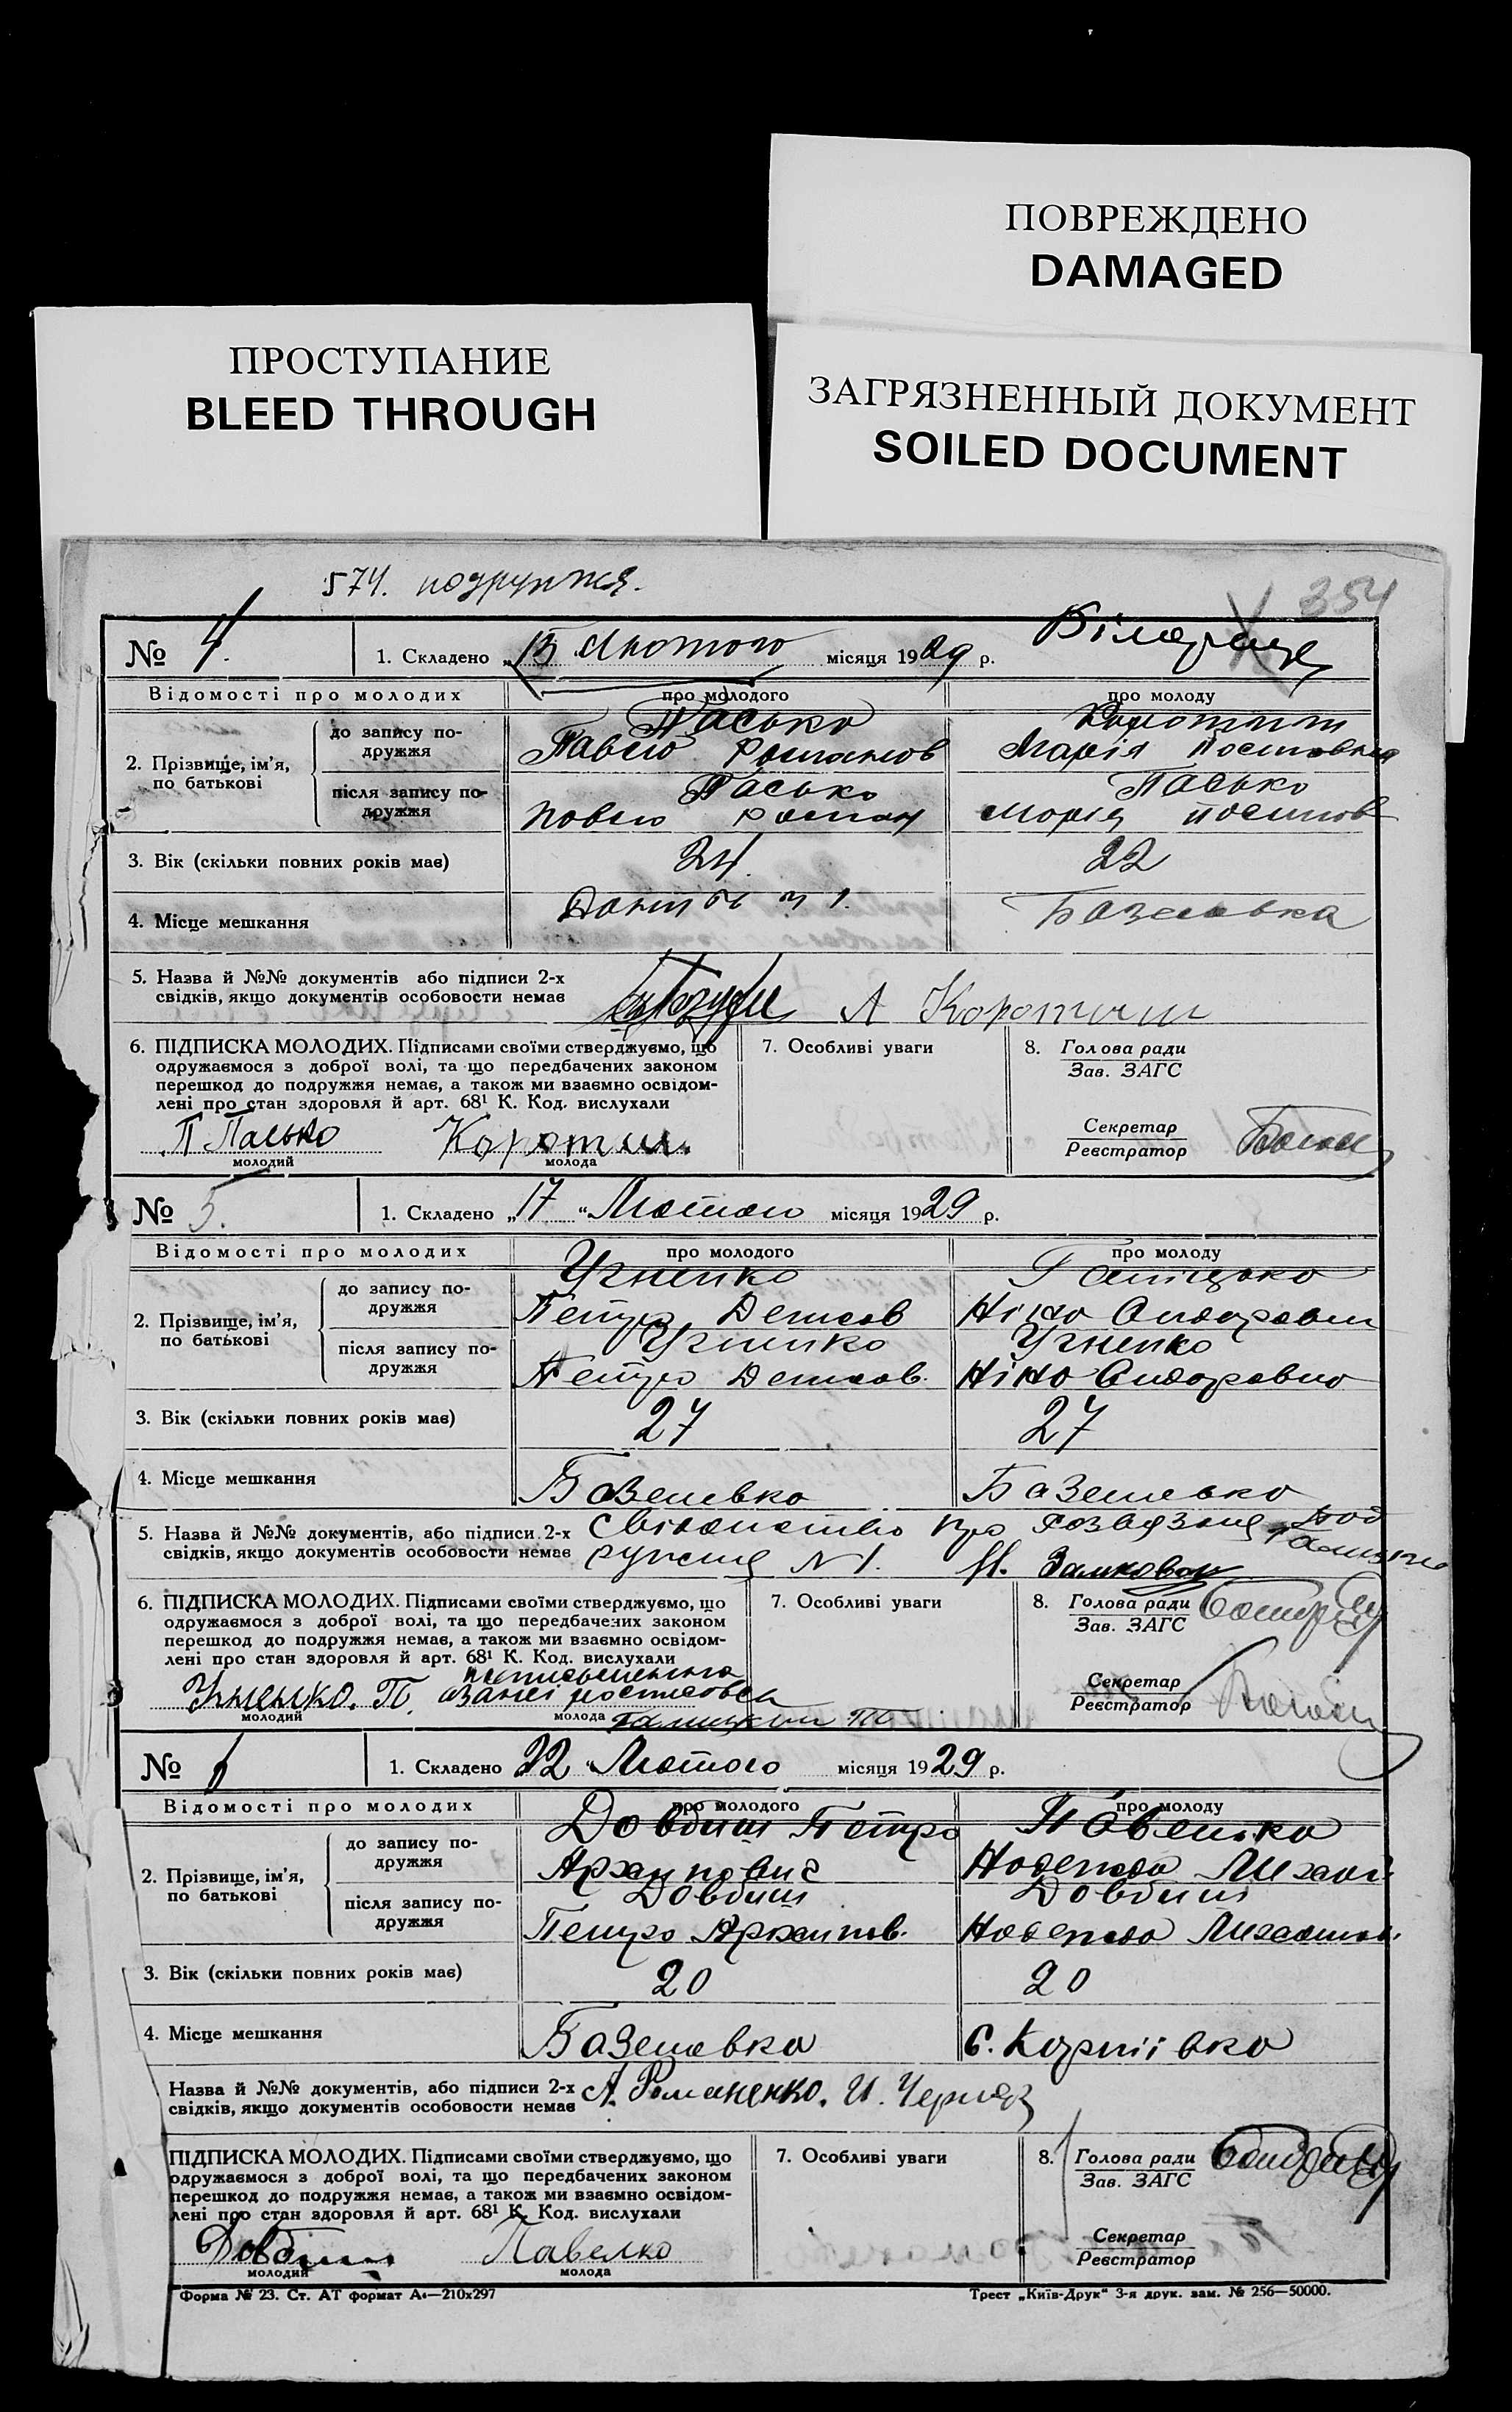 ПОВРЕЖДЕНО
DAMAGED
ПРОСТУПАНИЕ
BLEED THROUGH
ЗАГРЯЗНЕННЫЙ ДОКУМЕНТ
SOILED DOCUMENT
574. подружжя.
354
№ 4. 1. Складено „15 Лютого місяця 1929 р.
Відомості про молодих про молодого про молоду
2. Прізвище, ім'я, по батькові
до запису по-
дружжя
Пасько
Павло Романов Марія
після запису по-
дружжя
Пасько Пасько
Павло Роман Марія
3. Вік (скільки повних років має) 24. 22
4. Місце мешкання Базелівка
5. Назва й №№ документів або підписи 2-х
свідків, якщо документів особовости немає А Коротыш
6. ПІДПИСКА МОЛОДИХ. Підписами своїми стверджуємо, що
одружаємося з доброї волі, та що передбачених законом
перешкод до подружжя немає, а також ми взаємно освідом-
лені про стан здоровля й арт. 68¹ К. Код. вислухали
П Пасько
молодий молода
7. Особливі уваги
8. Голова ради
Зав. ЗАГС
Секретар
Реєстратор
№ 5. 1. Складено „17 “ Лютого місяця 1929 р.
Відомості про молодих про молодого про молоду
2. Прізвище, ім'я, по батькові
до запису по-
дружжя
Петро Денисов Ніна
після запису по-
дружжя
Петро Денисов. Ніна Сидоровно
3. Вік (скільки повних років має) 27 27
4. Місце мешкання Базелівка Базелівка
5. Назва й №№ документів, або підписи 2-х
свідків, якщо документів особовости немає
N 1.
6. ПІДПИСКА МОЛОДИХ. Підписами своїми стверджуємо, що
одружаємося з доброї волі, та що передбачених законом
перешкод до подружжя немає, а також ми взаємно освідом-
лені про стан здоровля й арт. 68¹ К. Код. вислухали
молодий молода
7. Особливі уваги
8. Голова ради
Зав. ЗАГС
Секретар
Реєстратор
№ 6 1. Складено 22 “ Лютого місяця 1929 р.
Відомості про молодих про молодого про молоду
2. Прізвище, ім'я, по батькові
до запису по-
дружжя
Довбиш Петро Павелко
Архипович Надежда Михай.
після запису по-
дружжя
Довбиш Довбиш
Петро Архипов. Надежда Михайлов.
3. Вік (скільки повних років має) 20 20
4. Місце мешкання Базелівка с. Корніївка
Назва й №№ документів, або підписи 2-х
свідків, якщо документів особовости немає А. Романенко. И. Черняк
ПІДПИСКА МОЛОДИХ. Підписами своїми стверджуємо, що
одружаємося з доброї волі, та що передбачених законом
перешкод до подружжя немає, а також ми взаємно освідом-
лені про стан здоровля й арт. 68¹ К. Код. вислухали
Довбиш Павелко
молодий молода
7. Особливі уваги
8. Голова ради
Зав. ЗАГС
Секретар
Реєстратор
Форма № 23. Ст. АТ формат А₄—210х297 Трест „Київ-Друк“ 3-я друк. зам. № 256—50000.